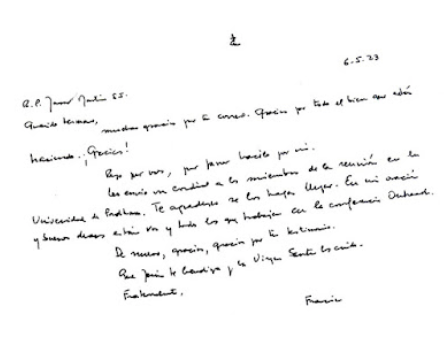 6.5.23
R.P. James Martin SJ.
Querido hermano,
muchas gracias por tu correo. Gracias por todo el bien que estás
haciendo. ¡Gracias!
Rezo por vos, por favor hacelo por mí.
Les envío un cordial a los miembros de la reunión en la
Universidad de Fordham. Te agradezco se los hagas llegar. En mi oración
y buenos deseos están vos y todos los que trabajan en la conferencia Outreach.
De nuevo, gracias, gracias por tu testimonio.
Que Jesús te bendiga y la Virgen Santa los cuide.
Fraternalmente,
Francisco